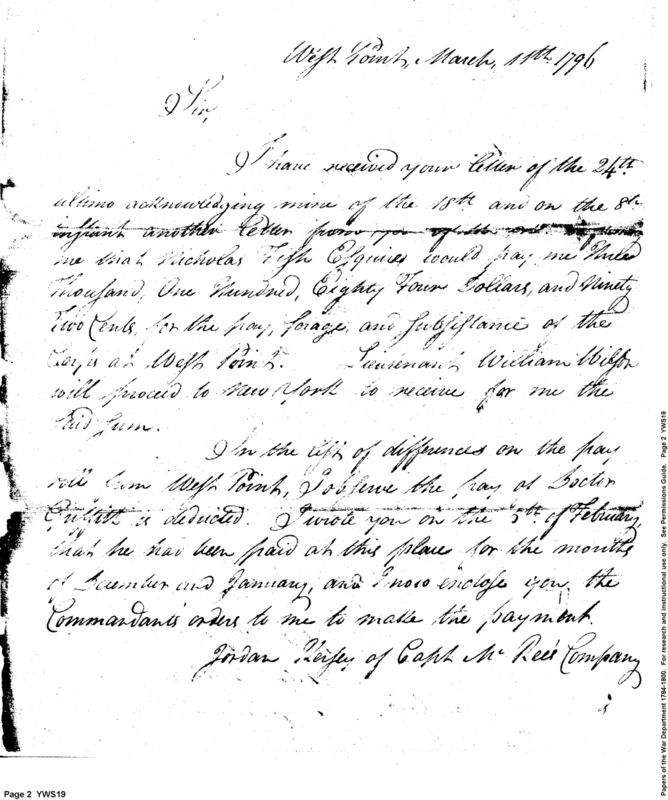 West Point, March, 11th. 1796
Sir,
I have received your letter of the 24th.
ultimo acknowledging mine of the 18th and on the 8th
instant another letter from you of the
me that Nicholas Fish Esquire would pay me Three
Thousand, One Hundred, Eighty Four Dollars, and Ninety
Two Cents, for the pay, forage, and Subsistance of the
Corps at West Point. Lieutenant William Wilson
will proceed to New York to receive for me the
said sum.
In the list of differences on the pay
roll from West Point, I observe the pay of Doctor
Griffith is deducted. I wrote you on the 5th. of February,
that he had been paid at this place for the months
of December and January, and I now enclose you, the
Commandants orders to me to make the payment.
Jordan Kersey of Capt Mc Ree's Company
is
Page 2 YWS19
Papers of the War Department 1784-1800. For research and instructional use only. See Permissions Guide. Page 2 YWS19